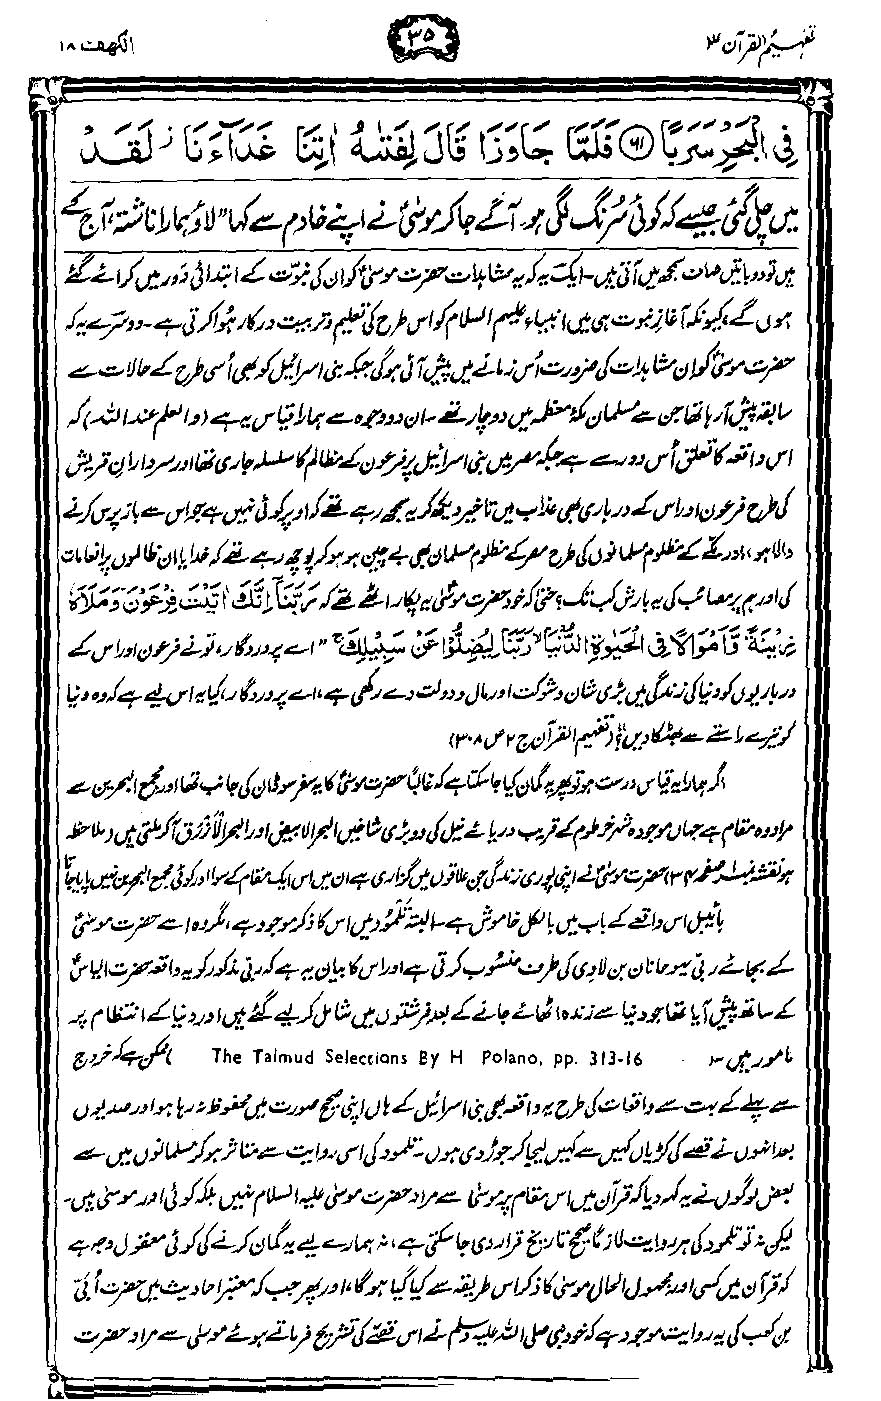 تفہیم القرآن ۳
۳۵
الکہف ۱۸
فِي الْبَحْرِ سَرَبًا ﴿۶۱﴾ فَلَمَّا جَاوَزَا قَالَ لِفَتٰىهُ اٰتِنَا غَدَآءَنَا ۫ لَقَدْ
میں چلی گئی جیسے کہ کوئی سُرنگ لگی ہو۔ آگے جا کر موسیٰؑ نے اپنے خادم سے کہا ”لاؤ ہمارا ناشتہ، آج کے
ہیں تو دو باتیں صاف سمجھ میں آتی ہیں۔ ایک یہ کہ یہ مشاہدات حضرت موسیٰؑ کو ان کی نبوّت کے ابتدائی دَور میں کرائے گئے
ہوں گے، کیونکہ آغازِ نبوت ہی میں انبیاء علیہم السلام کو اس طرح کی تعلیم و تربیت درکار ہُوا کرتی ہے۔ دوسرے یہ کہ
حضرت موسیٰؑ کو ان مشاہدات کی ضرورت اُس زمانے میں پیش آئی ہوگی جبکہ بنی اسرائیل کو بھی اُسی طرح کے حالات سے
سابقہ پیش آ رہا تھا جن سے مسلمان مکۂ معظمہ میں دوچار تھے۔ ان دو وجوہ سے ہمارا قیاس یہ ہے (والعلم عند اللہ) کہ
اس واقعہ کا تعلق اُس دور سے ہے جبکہ مصر میں بنی اسرائیل پر فرعون کے مظالم کا سلسلہ جاری تھا اور سردارانِ قریش
کی طرح فرعون اور اس کے درباری بھی عذاب میں تاخیر دیکھ کر یہ سمجھ رہے تھے کہ اوپر کوئی نہیں ہے جو اس سے باز پرس کرنے
والا ہو، اور مکّے کے مظلوم مسلمانوں کی طرح مصر کے مظلوم مسلمان بھی بے چین ہو ہو کر پوچھ رہے تھے کہ خدایا ان ظالموں پر انعامات
کی اور ہم پر مصائب کی یہ بارش کب تک؟ حتیٰ کہ خود حضرت موسیٰؑ یہ پکار اٹھے تھے کہ رَبَّنَآ اِنَّكَ اٰتَيْتَ فِرْعَوْنَ وَمَلَاَهٗ
زِيْنَةً وَّاَمْوَالًا فِي الْحَيٰوةِ الدُّنْيَا ۙ رَبَّنَا لِيُضِلُّوْا عَنْ سَبِيْلِكَ ۚ ”اے پروردگار، تو نے فرعون اور اس کے
درباریوں کو دنیا کی زندگی میں بڑی شان و شوکت اور مال و دولت دے رکھی ہے، اے پروردگار، کیا یہ اس لیے ہے کہ وہ دنیا
کو تیرے راستے سے بھٹکا دیں؟“ (تفہیم القرآن ج ۲ ص ۳۰۸)
اگر ہمارا یہ قیاس درست ہو تو پھر یہ گمان کیا جا سکتا ہے کہ غالباً حضرت موسیٰؑ کا یہ سفر سوڈان کی جانب تھا اور مجمع البحرین سے
مراد وہ مقام ہے جہاں موجودہ شہر خرطوم کے قریب دریائے نیل کی دو بڑی شاخیں البحر الابیض اور البحر الْاَزْرَق آ کر ملتی ہیں (ملاحظہ
ہو نقشہ نمبر صفحہ ۳۴) حضرت موسیٰؑ نے اپنی پوری زندگی جن علاقوں میں گزاری ہے ان میں اس ایک مقام کے سوا اور کوئی مجمع البحرین نہیں پایا جاتا
بائیبل اس واقعے کے باب میں بالکل خاموش ہے۔ البتہ تلمود میں اس کا ذکر موجود ہے، مگر وہ اسے حضرت موسیٰؑ
کے بجائے ربی یہوحانان بن لاوی کی طرف منسوب کرتی ہے اور اس کا بیان یہ ہے کہ ربی مذکور کو یہ واقعہ حضرت الیاسؑ
کے ساتھ پیش آیا تھا جو دنیا سے زندہ اٹھائے جانے کے بعد فرشتوں میں شامل کر لیے گئے ہیں اور دنیا کے انتظام پر
مامور ہیں۔ (The Talmud Selections By H Polano, pp. 313-16) ممکن ہے کہ خروج
سے پہلے کے بہت سے واقعات کی طرح یہ واقعہ بھی بنی اسرائیل کے ہاں اپنی صحیح صورت میں محفوظ نہ رہا ہو اور صدیوں
بعد انہوں نے قصے کی کڑیاں کہیں سے کہیں لیجا کر جوڑ دی ہوں۔ تلمود کی اسی روایت سے متاثر ہو کر مسلمانوں میں سے
بعض لوگوں نے یہ کہہ دیا کہ قرآن میں اس مقام پر موسیٰ سے مراد حضرت موسیٰ علیہ السلام نہیں بلکہ کوئی اور موسیٰ ہیں۔
لیکن نہ تو تلمود کی ہر روایت لازماً صحیح تاریخ قرار دی جا سکتی ہے، نہ ہمارے لیے یہ گمان کرنے کی کوئی معقول وجہ ہے
کہ قرآن میں کسی اور مجہول الحال موسیٰ کا ذکر اس طریقہ سے کیا گیا ہوگا، اور پھر جب کہ معتبر احادیث میں حضرت اُبَیّ
بن کعب کی یہ روایت موجود ہے کہ خود نبی صلی اللہ علیہ وسلم نے اس قصّے کی تشریح فرماتے ہوئے موسیٰ سے مراد حضرت